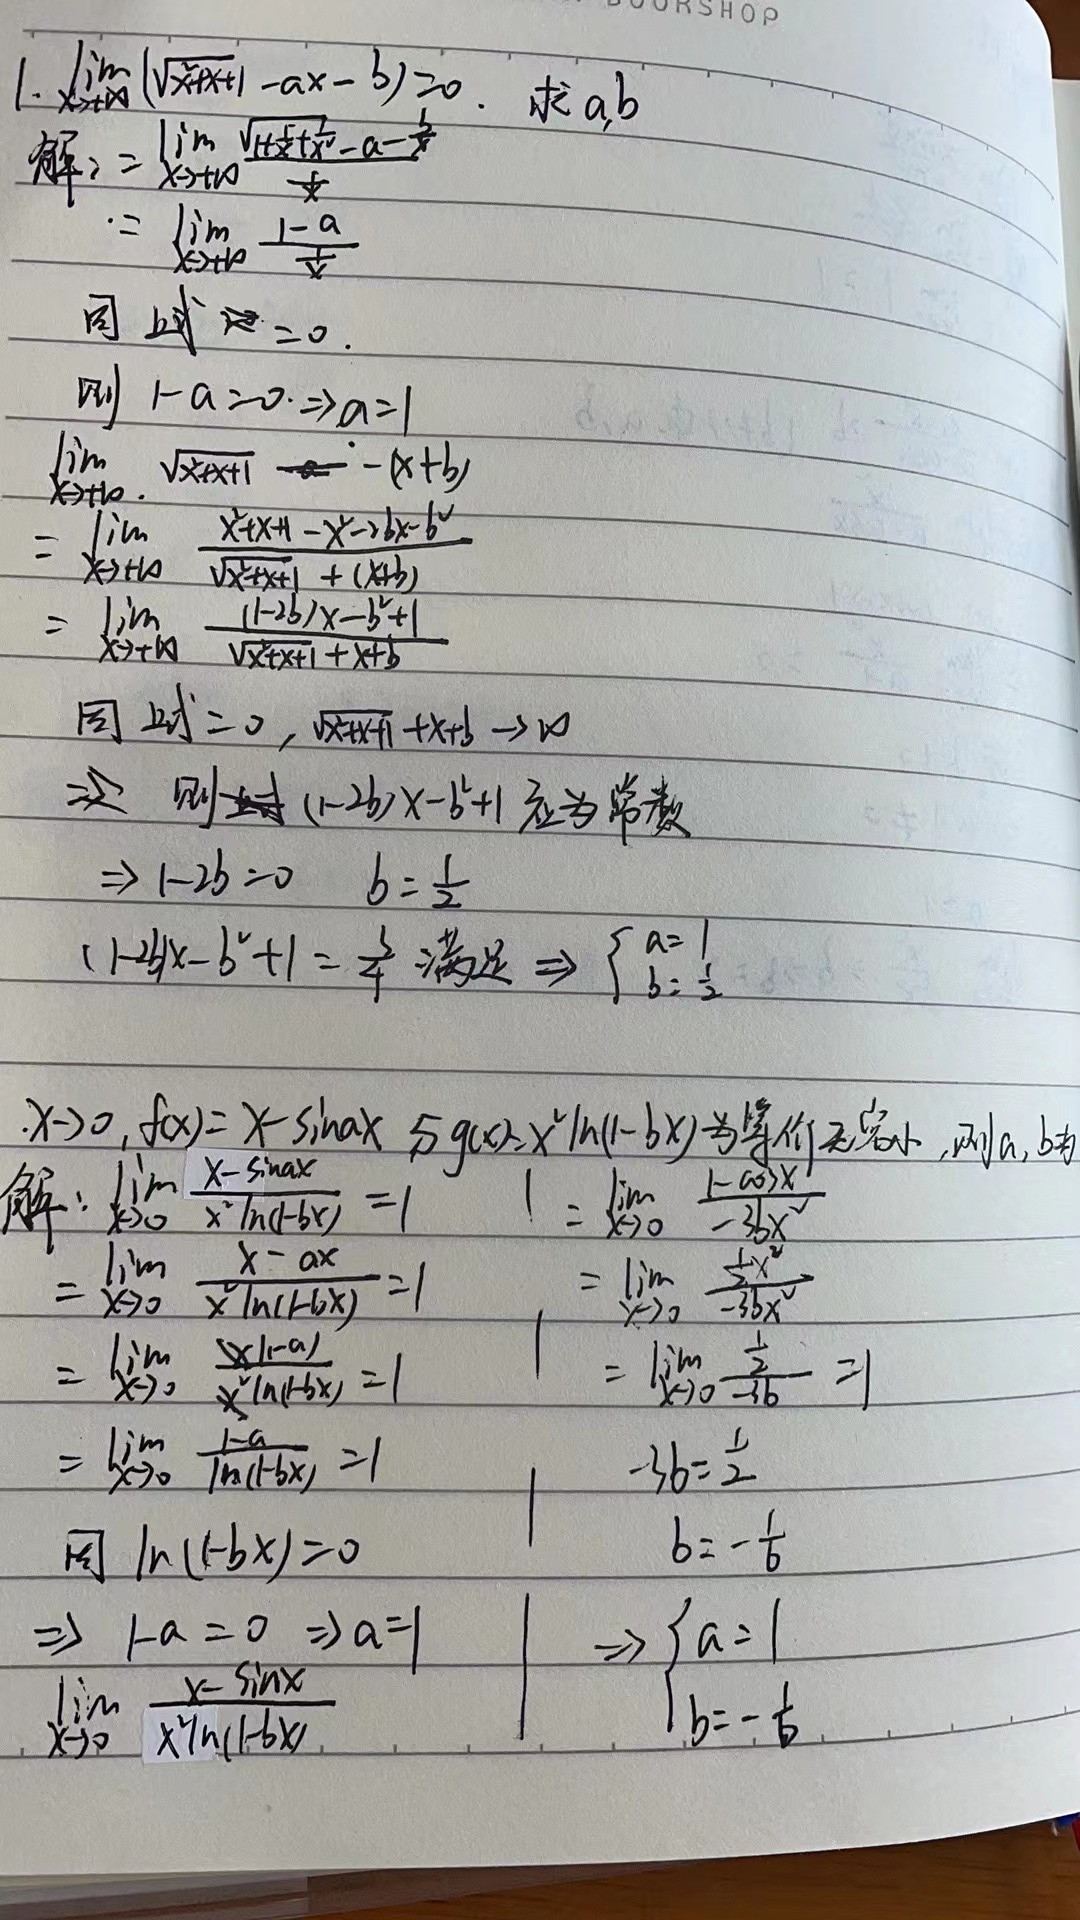 BOOKSHOP
1. lim x→+∞ (√(x²+x+1) - ax - b) = 0. 求a,b
解: = lim x→+∞ (√(1+1/x+1/x²) - a - b/x) / (1/x)
= lim x→+∞ (1-a) / (1/x)
因上式 = 0.
则 1-a=0 ⇒ a=1
lim x→+∞ √(x²+x+1) - (x+b)
= lim x→+∞ (x²+x+1-x²-2bx-b²) / (√(x²+x+1) + (x+b))
= lim x→+∞ ((1-2b)x-b²+1) / (√(x²+x+1)+x+b)
因上式=0, √(x²+x+1)+x+b→∞
⇒ 则 (1-2b)x-b²+1应为常数
⇒ 1-2b=0 b=1/2
(1-2b)x-b²+1=3/4 满足 ⇒ { a=1 b=1/2
.x→0, f(x)=x-sinax 与g(x)=x²ln(1-bx)为等价无穷小,则a,b为
解: lim x→0 (x-sinax) / (x²ln(1-bx)) = 1
= lim x→0 (x-ax) / (x²ln(1-bx)) = 1
= lim x→0 x(1-a) / (x²ln(1-bx)) = 1
= lim x→0 (1-a) / ln(1-bx) = 1
因 ln(1-bx)=0
⇒ 1-a=0 ⇒ a=1
lim x→0 (x-sinx) / (x²ln(1-bx))
= lim x→0 (1-cosx) / (-3bx²)
= lim x→0 (1/2 x²) / (-3bx²)
= lim x→0 (1/2) / (-3b) = 1
-3b=1/2
b=-1/6
⇒ { a=1
b=-1/6